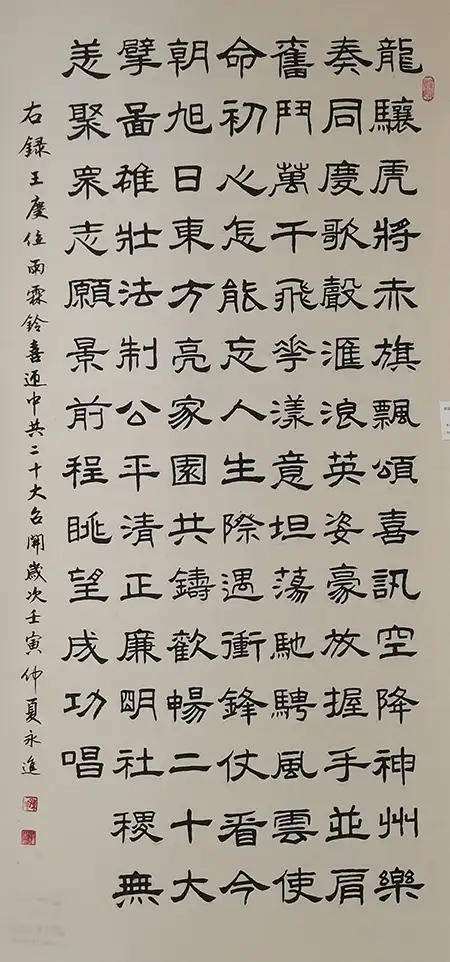 龍驤虎將赤旗飄頌喜訊空降神州樂
奏同慶歌聲滙浪英姿豪放握手並肩
奮鬥萬千飛華漾意坦蕩馳騁風雲使
命初心怎能忘人生際遇衝鋒仗看今
朝旭日東方亮家園共鑄歡暢二十大
擘啚雄壯法制公平清正廉明社稷無
恙聚眾志願景前程眺望成功唱
右録王慶位雨霖鈴喜迎中共二十大召開歲次壬寅仲夏永進